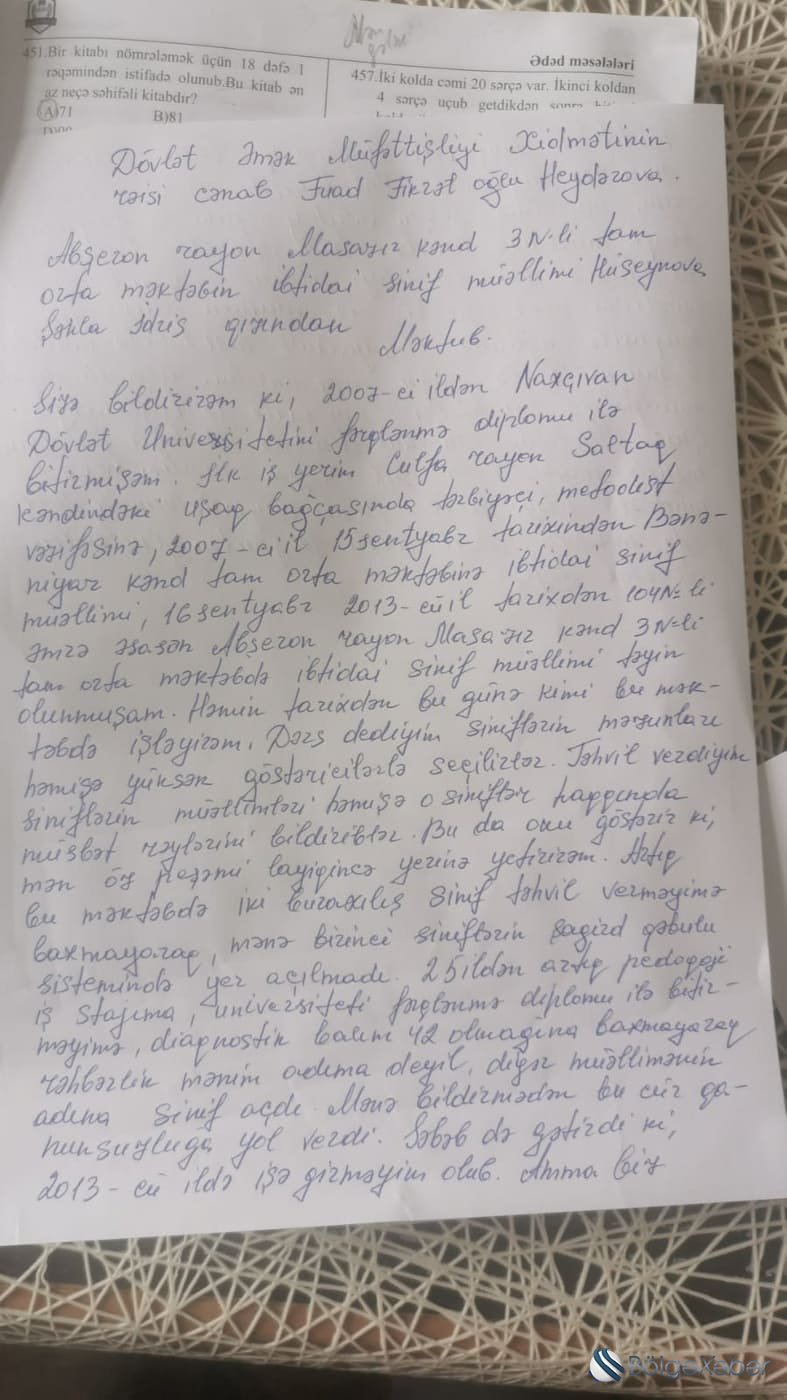 451.Bir kitabı nömrələmək üçün 18 dəfə 1
rəqəmindən istifadə olunub.Bu kitab ən
az neçə səhifəli kitabdır?
A)71 B)81
Ədəd məsələləri
457.İki kolda cəmi 20 sərçə var. İkinci koldan
4 sərçə uçub getdikdən sonra
Dövlət Əmək Müfəttişliyi Xidmətinin
rəisi cənab Fuad Fikrət oğlu Heydərova.
Abşeron rayon Masazır kənd 3 N-li tam
orta məktəbin ibtidai sinif müəllimi Hüseynova
Şəhla İdris qızından
Məktub.
Sizə bildirirəm ki, 2007-ci ildən Naxçıvan
Dövlət Universitetini fərqlənmə diplomu ilə
bitirmişəm. İlk iş yerim Culfa rayon Saltaq
kəndindəki uşaq bağçasında tərbiyəçi, metodist
vəzifəsinə, 2007-ci il 15 sentyabr tarixindən Bənə-
niyar kənd tam orta məktəbinə ibtidai sinif
müəllimi, 16 sentyabr 2013-cü il tarixdən 104 №-li
əmrə əsasən Abşeron rayon Masazır kənd 3 N-li
tam orta məktəbdə ibtidai sinif müəllimi təyin
olunmuşam. Həmin tarixdən bu günə kimi bu mək-
təbdə işləyirəm. Dərs dediyim siniflərin məzunları
həmişə yüksək göstəricilərlə seçilirlər. Təhvil verdiyim
siniflərin müəllimləri həmişə o siniflər haqqında
müsbət rəylərini bildiriblər. Bu da onu göstərir ki,
mən öz peşəmi layiqincə yerinə yetirirəm. Artıq
bu məktəbdə iki buraxılış sinif təhvil verməyimə
baxmayaraq, mənə birinci siniflərin şagird qəbulu
sistemində yer açılmadı. 25 ildən artıq pedoqoji
iş stajıma, universiteti fərqlənmə diplomu ilə bitir-
məyimə, diaqnostik balım 42 olmağına baxmayaraq
rəhbərlik mənim adıma deyil, digər müəllimənin
adına sinif açdı. Mənə bildirmədən bu cür qa-
nunsuzluğa yol verdi. Səbəb də gətirdi ki,
2013-cü ildə işə girməyim olub. Amma biz
BölgəXəbər